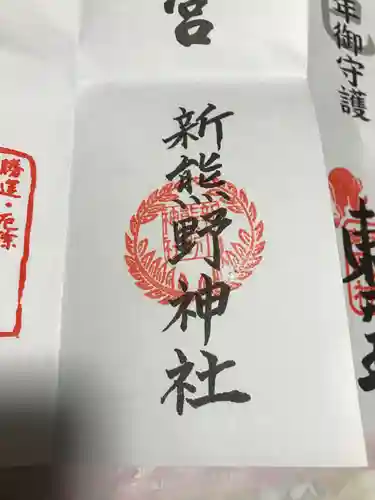 年御守護
宮
新熊野神社
勝運・厄除
東